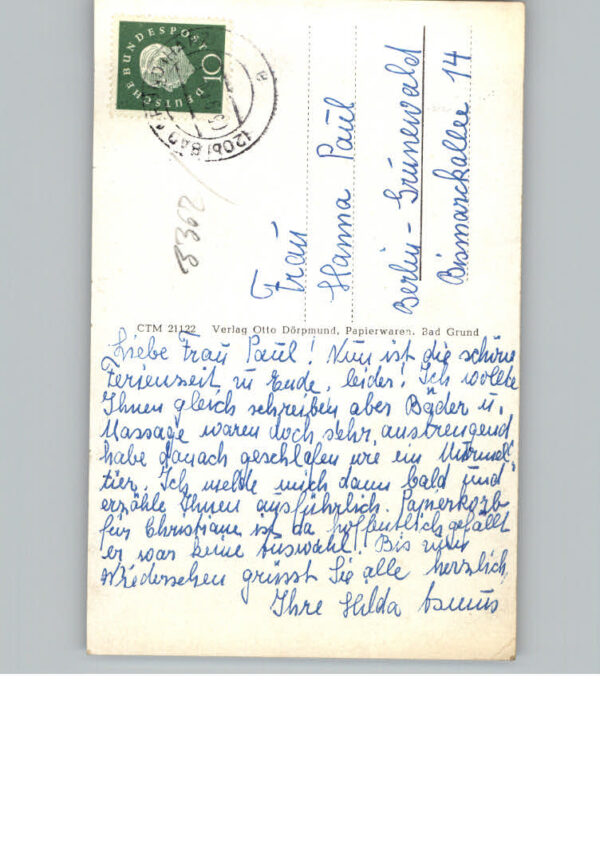 DEUTSCHE BUNDESPOST
10
(20b) BAD
a
5362
Frau
Hanna Paul
Berlin-Grünewald
Bismarckallee 14
CTM 21122 Verlag Otto Dörpmund, Papierwaren, Bad Grund
Liebe Frau Paul! Nun ist die schöne
Ferienzeit zu Ende, leider! Ich wollte
Ihnen gleich schreiben aber Bäder u.
Massage waren doch sehr anstrengend
habe danach geschlafen wie ein Murmel
tier. Ich melde mich dann bald und
erzähle Ihnen ausführlich. Papierkorb
für Christiane ist da hoffentlich gefällt
er war keine Auswahl! Bis zum
Wiedersehen grüsst Sie alle herzlich,
Ihre Hilda Asmus